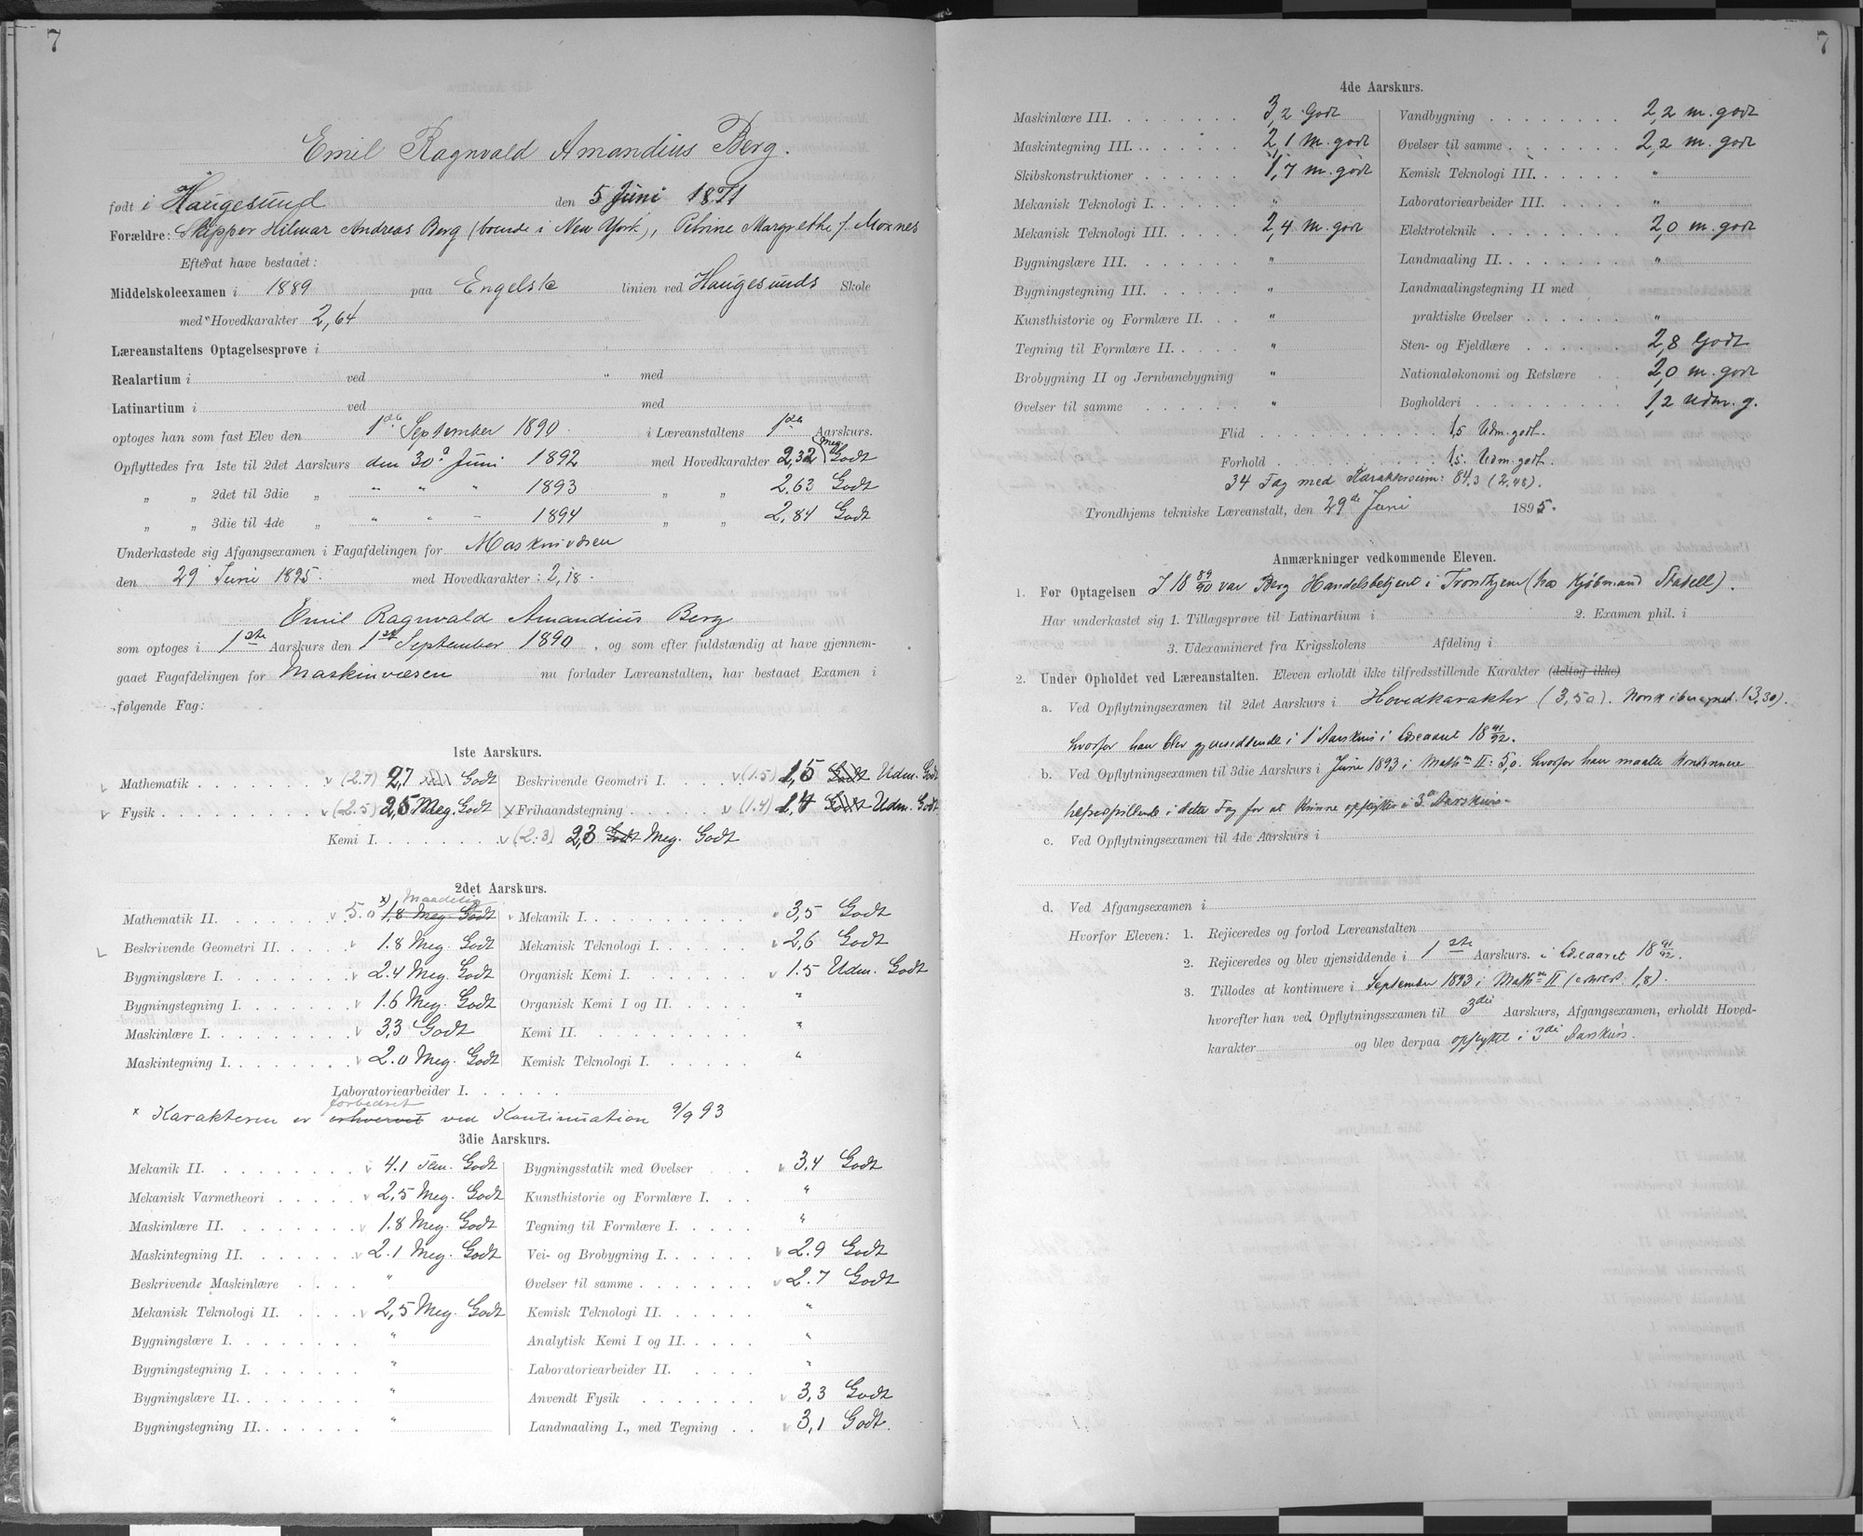 7
Emil Ragnvald Amandius Berg.
født i Haugesund den 5 Juni 1871
Forældre: Skipper Hilmar Andreas Berg (boende i New York), Petrine Margrethe f. Moxnes
Efterat have bestaaet:
Middelskoleexamen i 1889 paa Engelske linien ved Haugesunds Skole
med Hovedkarakter 2,64
Læreanstaltens Optagelsesprøve i
Realartium i ved " med
Latinartium i ved med
optoges han som fast Elev den 1ste September 1890 i Læreanstaltens 1ste Aarskurs.
Opflyttedes fra 1ste til 2det Aarskurs den 30e Juni 1892 med Hovedkarakter 2,32 Meg. Godt
" " 2det til 3die " " " " 1893 " " 2,63 Godt
" " 3die til 4de " " " " 1894 " " 2,84 Godt
Underkastede sig Afgangsexamen i Fagafdelingen for Maskinvæsen
den 29 Juni 1895. med Hovedkarakter: 2,18.
Emil Ragnvald Amandius Berg
som optoges i 1ste Aarskurs den 1ste September 1890, og som efter fuldstændig at have gjennem-
gaaet Fagafdelingen for Maskinvæsen nu forlader Læreanstalten, har bestaaet Examen i
følgende Fag:
1ste Aarskurs.
Mathematik v (2.7) 2,7 Godt Beskrivende Geometri I. v (1.5) 1,5 Godt Udm. Godt
Fysik v (2.5) 2,5 Meg. Godt x Frihaandstegning v (1.4) 1,4 Godt Udm. Godt
Kemi I. v (2.3) 2,3 Godt Meg. Godt
2det Aarskurs.
Maadelig
Mathematik II. v 5.0 x) 1,8 Meg. Godt v Mekanik I. v 3,5 Godt
Beskrivende Geometri II. v 1.8 Meg. Godt Mekanisk Teknologi I. v 2,6 Godt
Bygningslære I. v 2.4 Meg. Godt Organisk Kemi I. v 1.5 Udm. Godt
Bygningstegning I. v 1.6 Meg. Godt Organisk Kemi I og II. "
Maskinlære I. v 3,3 Godt Kemi II. "
Maskintegning I. v 2.0 Meg. Godt Kemisk Teknologi I. "
Laboratoriearbeider I.
forbedret
x Karakteren er erhvervet ved Kontinuation 9/9 93
3die Aarskurs.
Mekanik II. v 4.1 Tem. Godt Bygningsstatik med Øvelser v 3.4 Godt
Mekanisk Varmetheori v 2,5 Meg. Godt Kunsthistorie og Formlære I. "
Maskinlære II. v 1.8 Meg. Godt Tegning til Formlære I. "
Maskintegning II. v 2.1 Meg. Godt Vei- og Brobygning I. v 2.9 Godt
Beskrivende Maskinlære " Øvelser til samme v 2.7 Godt
Mekanisk Teknologi II. v 2,5 Meg. Godt Kemisk Teknologi II. "
Bygningslære I. " Analytisk Kemi I og II. "
Bygningstegning I. " Laboratoriearbeider II. "
Bygningslære II. " Anvendt Fysik v 3,3 Godt
Bygningstegning II. " Landmaaling I., med Tegning v 3,1 Godt.
7
4de Aarskurs.
Maskinlære III. 3,2 Godt Vandbygning 2,2 m. godt
Maskintegning III. 2,1 m. godt Øvelser til samme 2,2 m. godt
Skibskonstruktioner 1,7 m. godt Kemisk Teknologi III. "
Mekanisk Teknologi I. " Laboratoriearbeider III. "
Mekanisk Teknologi III. 2,4 m. godt Elektroteknik 2,0 m. godt
Bygningslære III. " Landmaaling II. "
Bygningstegning III. " Landmaalingstegning II med
Kunsthistorie og Formlære II. " praktiske Øvelser "
Tegning til Formlære II. " Sten- og Fjeldlære 2,8 Godt
Brobygning II og Jernbanebygning " Nationaløkonomi og Retslære 2,0 m. godt
Øvelser til samme " Bogholderi 1,2 udm. g.
Flid 1,5 Udm. godt.
Forhold 1,5. Udm. godt.
34 Fag med Karaktersum: 84,3 (2,48).
Trondhjems tekniske Læreanstalt, den 29de Juni 1895.
Anmærkninger vedkommende Eleven.
1. Før Optagelsen I 18 89/90 var Berg Handelsbetjent i Trondhjem (hos Kjøbmand Stabell).
Har underkastet sig 1. Tillægsprøve til Latinartium i 2. Examen phil. i
3. Udexamineret fra Krigsskolens Afdeling i
2. Under Opholdet ved Læreanstalten. Eleven erholdt ikke tilfredsstillende Karakter (deltog ikke)
a. Ved Opflytningsexamen til 2det Aarskurs i Hovedkarakter (3,50). Norsk iberegnet (3,30).
hvorfor han blev gjensiddende i 1e Aarskurs i Læseaaret 18 91/92.
b. Ved Opflytningsexamen til 3die Aarskurs i Juni 1893 i Mathm II: 5,0. hvorfor han maatte kontinuere
i dette Fag for at kunne opflyttes i 3e Aarskurs.
c. Ved Opflytningsexamen til 4de Aarskurs i
d. Ved Afgangsexamen i
Hvorfor Eleven: 1. Rejiceredes og forlod Læreanstalten
2. Rejiceredes og blev gjensiddende i 1ste Aarskurs. i Læseaaret 18 91/92.
3. Tillodes at kontinuere i September 1893 i Mathm II (erhved. 1,8).
hvorefter han ved Opflytningsexamen til 3die Aarskurs, Afgangsexamen, erholdt Hoved-
karakter og blev derpaa opflyttet i 3die Aarskurs.